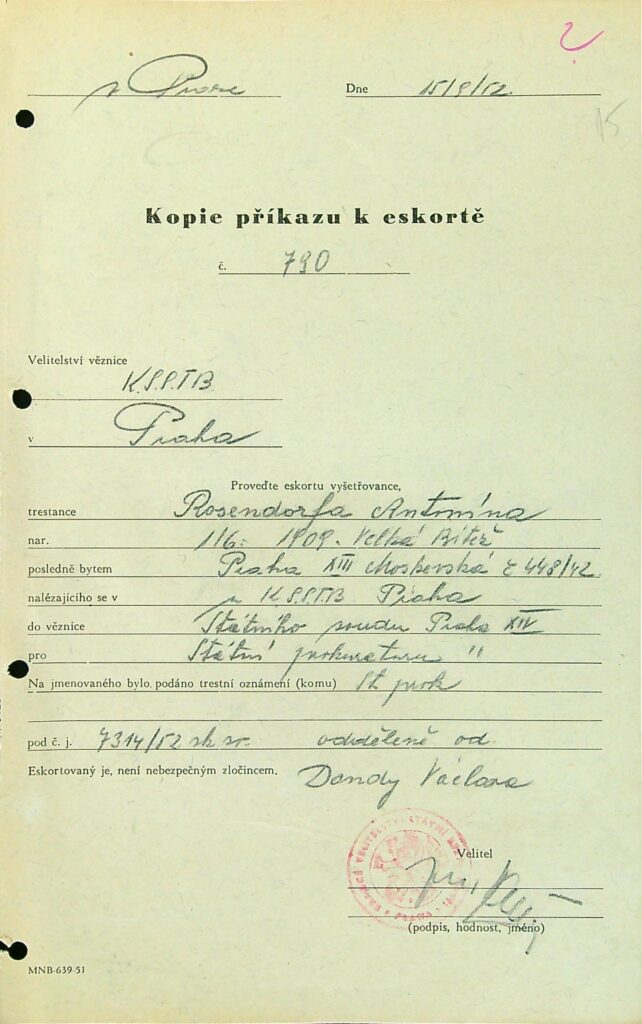 v Praze Dne 15/9/52.
15
Kopie příkazu k eskortě
č. 790
Velitelství věznice
K.S.P.T.B.
v Praha
Proveďte eskortu vyšetřovance,
trestance Rosendorfa Antonína
nar. 1909. Velká Bíteš
posledně bytem Praha XIII Moskevská č 448/42.
nalézajícího se v u K.S.P.TB. Praha
do věznice Státního soudu Praha XIV
pro Státní prokuraturu "
Na jmenovaného bylo podáno trestní oznámení (komu) St. prok
pod č. j. 7314/52 odděleně od
Eskortovaný je, není nebezpečným zločincem. Dandy Václava
Velitel
(podpis, hodnost, jméno)
MNB-639-51